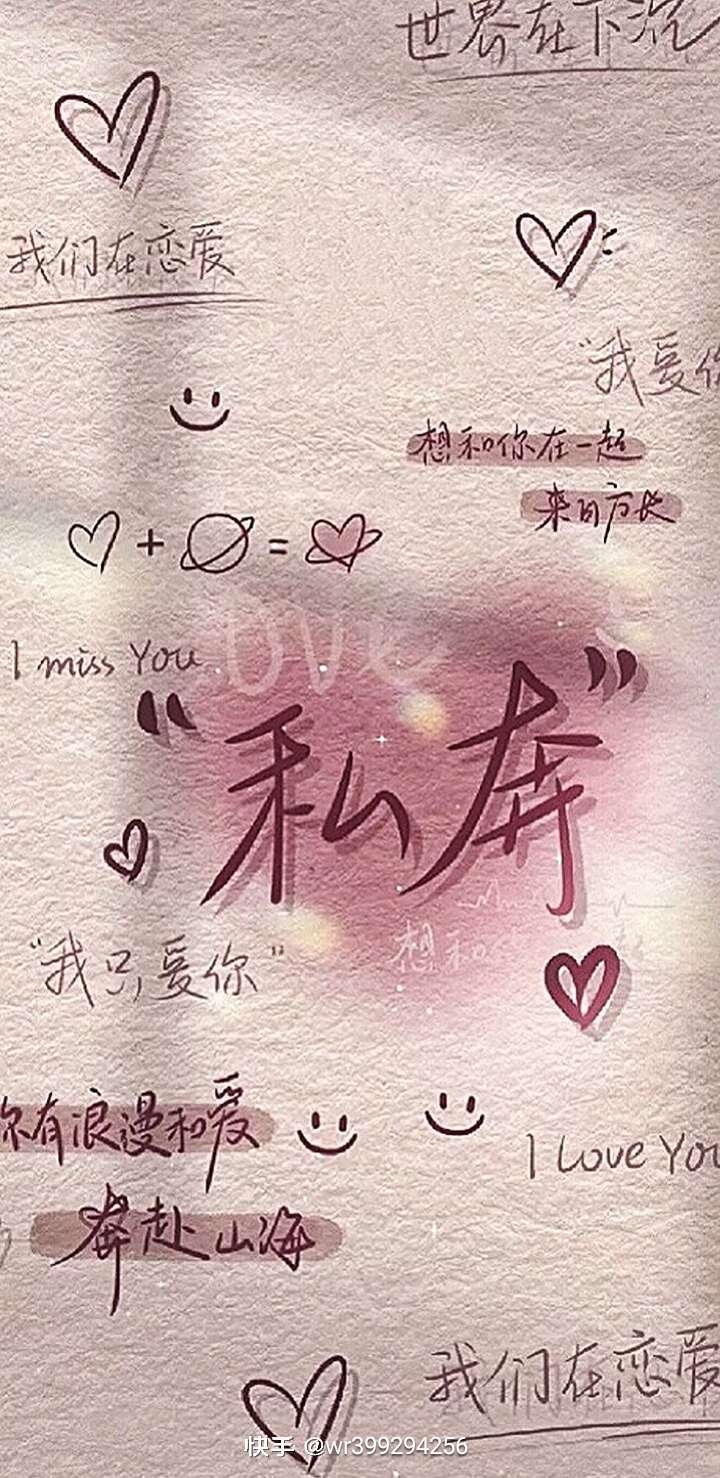 世界在下沉
我们在恋爱
"我爱你
想和你在一起
来日方长
I miss You
Love
"私奔"
想和
"我只爱你"
你有浪漫和爱
奔赴山海
I Love You
我们在恋爱
快手 @wr399294256